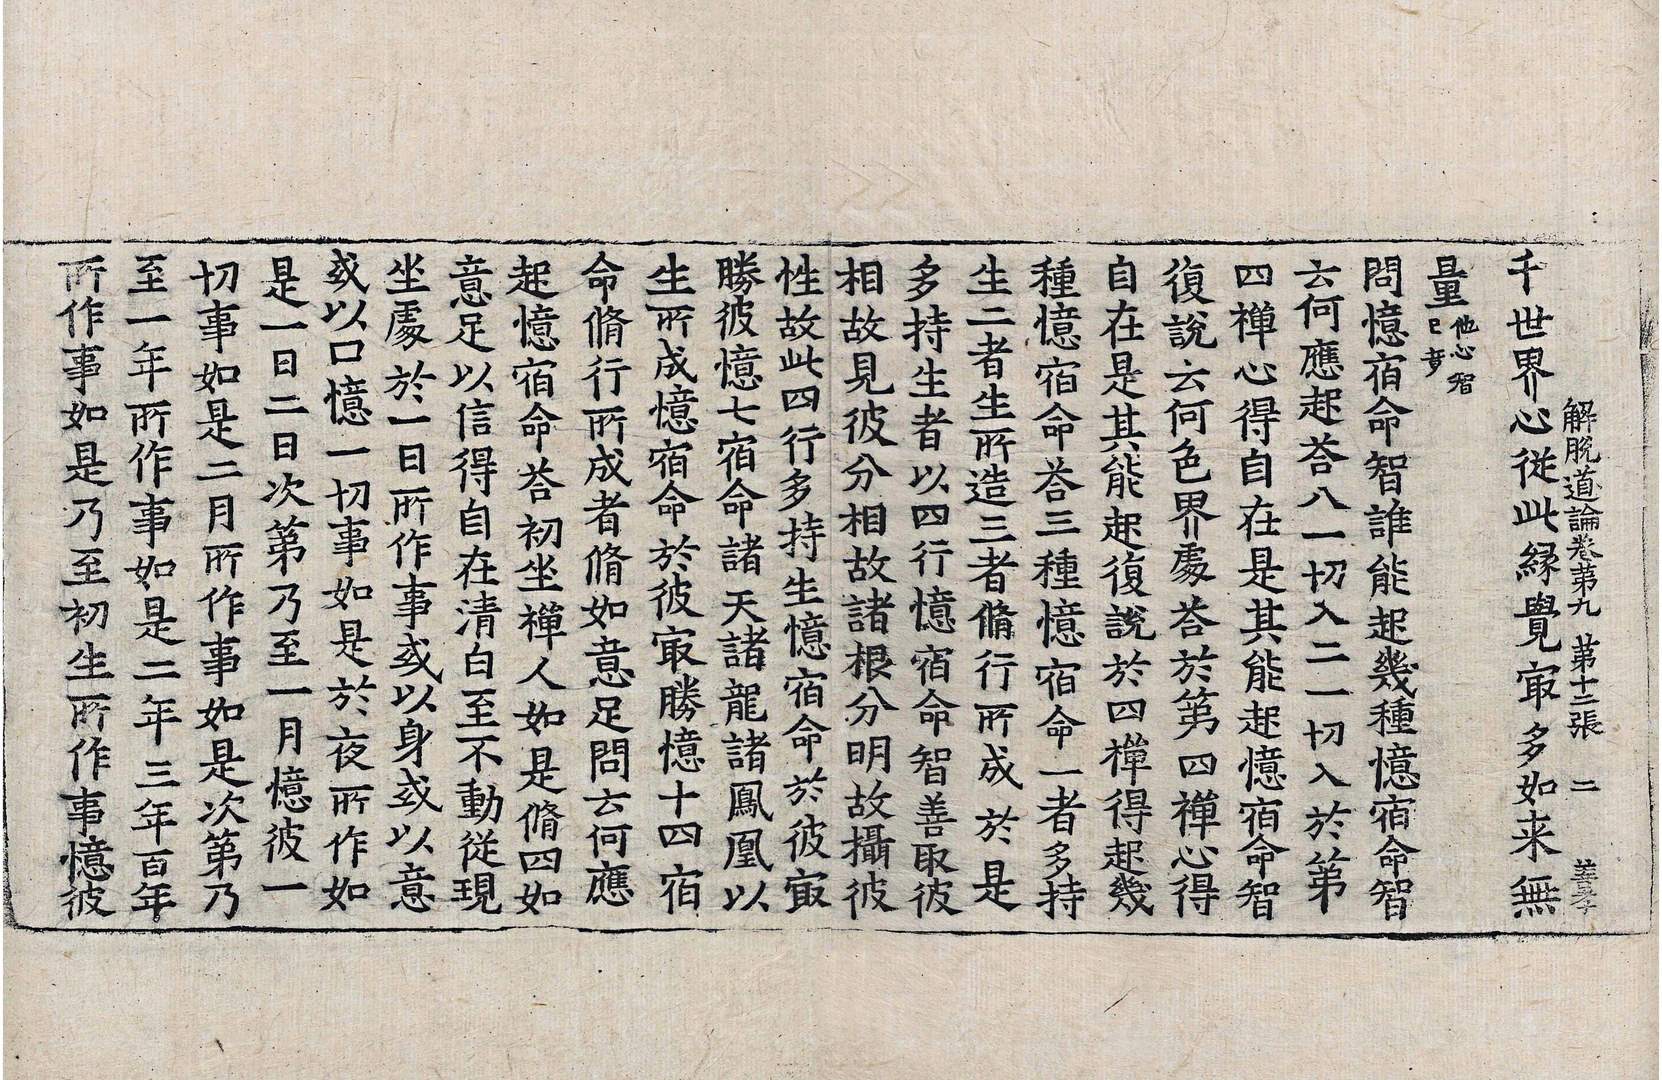 解脫道論卷第九 第十三張 二
千世界心從此縁覺㝡多如来無
量他心智已竟
問憶宿命智誰能起幾種憶宿命智
云何應起荅八一切入二一切入於第
四禪心得自在是其能起憶宿命智
復說云何色界處荅於第四禪心得
自在是其能起復說於四禪得起幾
種憶宿命荅三種憶宿命一者多持
生二者生所造三者脩行所成於是
多持生者以四行憶宿命智善取彼
相故見彼分相故諸根分明故攝彼
性故此四行多持生憶宿命於彼㝡
勝彼憶七宿命諸天諸龍諸鳳凰以
生所成憶宿命於彼㝡勝憶十四宿
命脩行所成者脩如意足問云何應
起憶宿命荅初坐禪人如是脩四如
意足以信得自在清白至不動從現
坐處於一日所作事或以身或以意
或以口憶一切事如是於夜所作如
是一日二日次第乃至一月憶彼一
切事如是二月所作事如是次第乃
至一年所作事如是二年三年百年
所作事如是乃至初生所作事憶彼